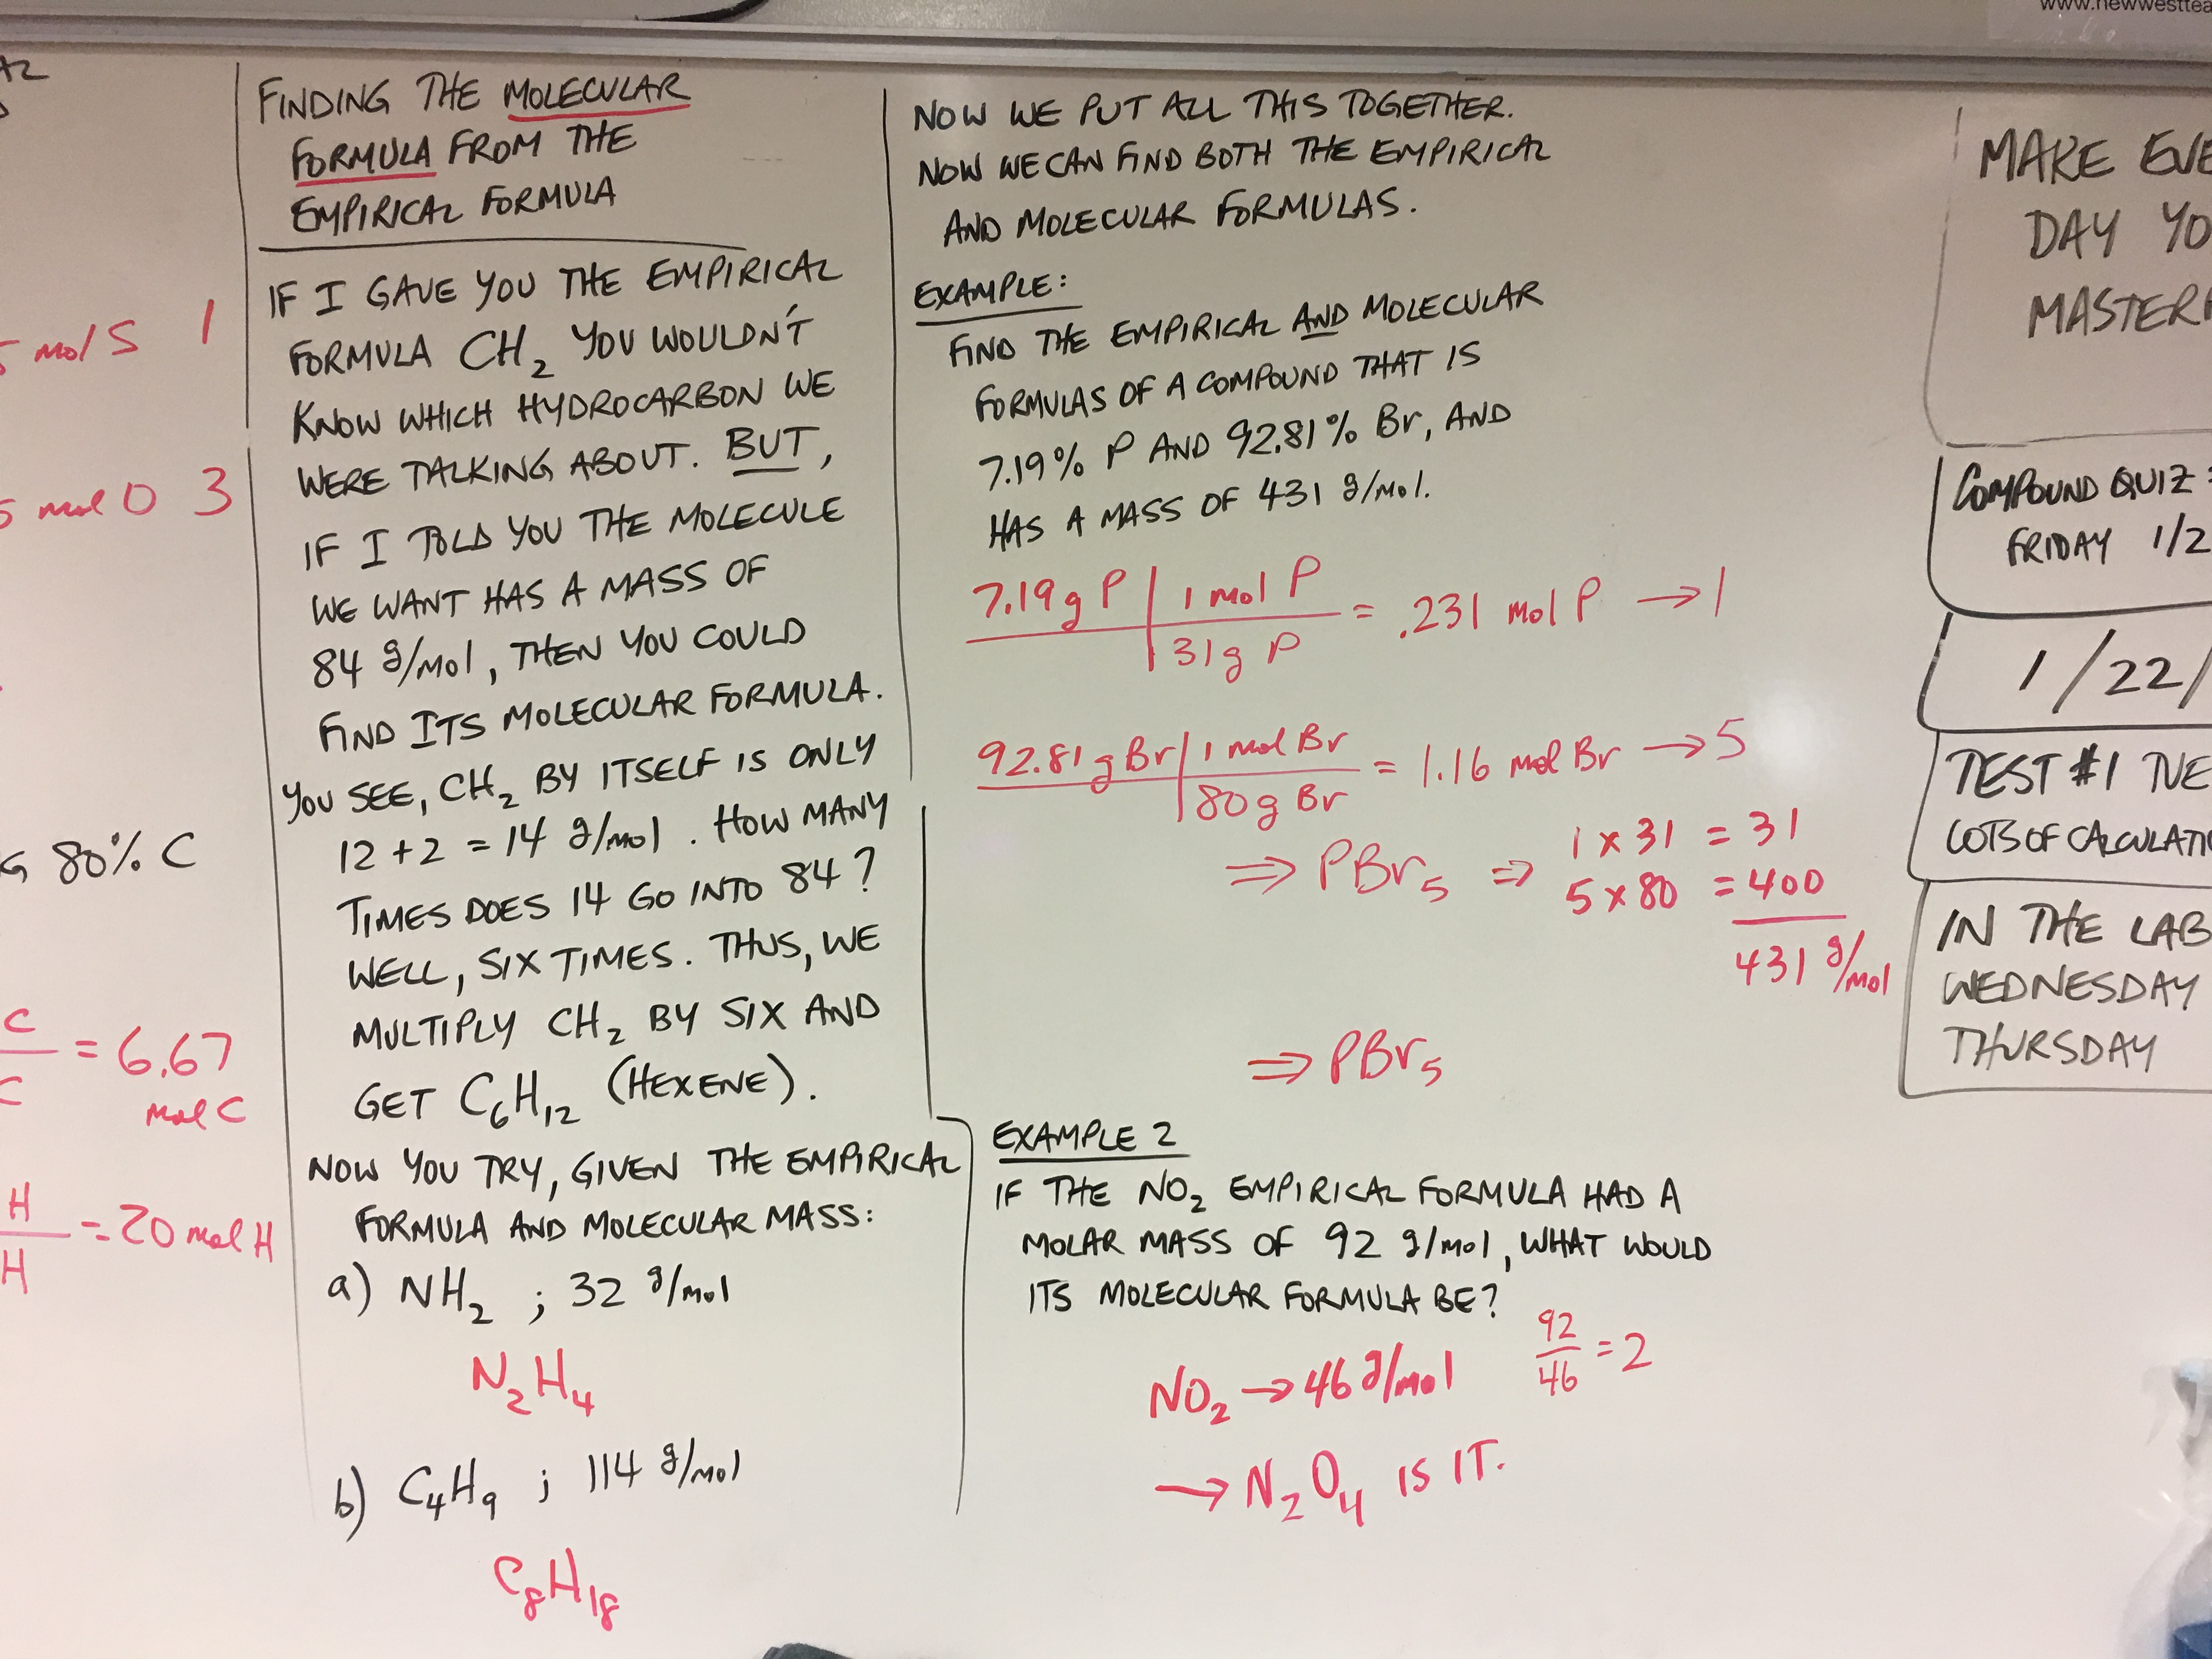 www.newwesttea
5 mol S 1
5 mol O 3
80% C
C
C
= 6.67
mol C
H
H
= 20 mol H
FINDING THE MOLECULAR
FORMULA FROM THE
EMPIRICAL FORMULA
IF I GAVE YOU THE EMPIRICAL
FORMULA CH₂ YOU WOULDN'T
KNOW WHICH HYDROCARBON WE
WERE TALKING ABOUT. BUT,
IF I TOLD YOU THE MOLECULE
WE WANT HAS A MASS OF
84 g/mol, THEN YOU COULD
FIND ITS MOLECULAR FORMULA.
YOU SEE, CH₂ BY ITSELF IS ONLY
12 + 2 = 14 g/mol. HOW MANY
TIMES DOES 14 GO INTO 84?
WELL, SIX TIMES. THUS, WE
MULTIPLY CH₂ BY SIX AND
GET C₆H₁₂ (HEXENE).
NOW YOU TRY, GIVEN THE EMPIRICAL
FORMULA AND MOLECULAR MASS:
a) NH₂ ; 32 g/mol
N₂H₄
b) C₄H₉ ; 114 g/mol
C₈H₁₈
NOW WE PUT ALL THIS TOGETHER.
NOW WE CAN FIND BOTH THE EMPIRICAL
AND MOLECULAR FORMULAS.
EXAMPLE:
FIND THE EMPIRICAL AND MOLECULAR
FORMULAS OF A COMPOUND THAT IS
7.19% P AND 92.81% Br, AND
HAS A MASS OF 431 g/mol.
7.19 g P | 1 mol P
31 g P
= .231 mol P → 1
92.81 g Br | 1 mol Br
80 g Br
= 1.16 mol Br → 5
⇒ PBr₅ ⇒
1 x 31 = 31
5 x 80 = 400
431 g/mol
⇒ PBr₅
EXAMPLE 2
IF THE NO₂ EMPIRICAL FORMULA HAD A
MOLAR MASS OF 92 g/mol, WHAT WOULD
ITS MOLECULAR FORMULA BE?
NO₂ → 46 g/mol
92
46
= 2
→ N₂O₄ IS IT.
MAKE EVE
DAY YO
MASTER
COMPOUND QUIZ:
FRIDAY 1/2
1/22/
TEST #1 TUE
LOTS OF CALCULATI
IN THE LAB
WEDNESDAY
THURSDAY